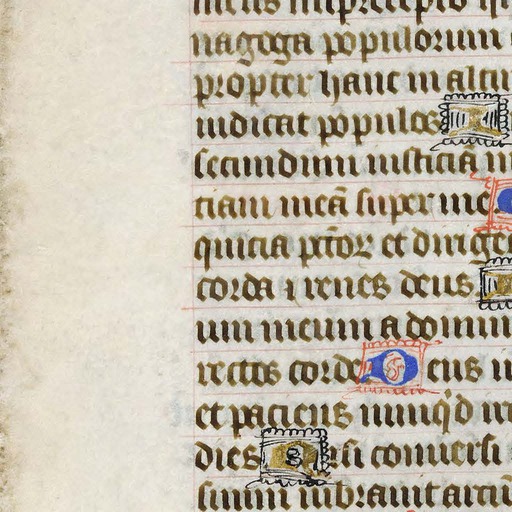 meus in precepto q
nagoga populorum
propter hanc in altu
iudicat populos I
secundum iusticiā m
tiam meā super me
quitia pctōꝝ et dirige
corda ⁊ renes deus
um meum a domin
rectos corde Deus iu
et paciens nūnq̓d ir
dies N isi conuersi
suum uibrauit arcū